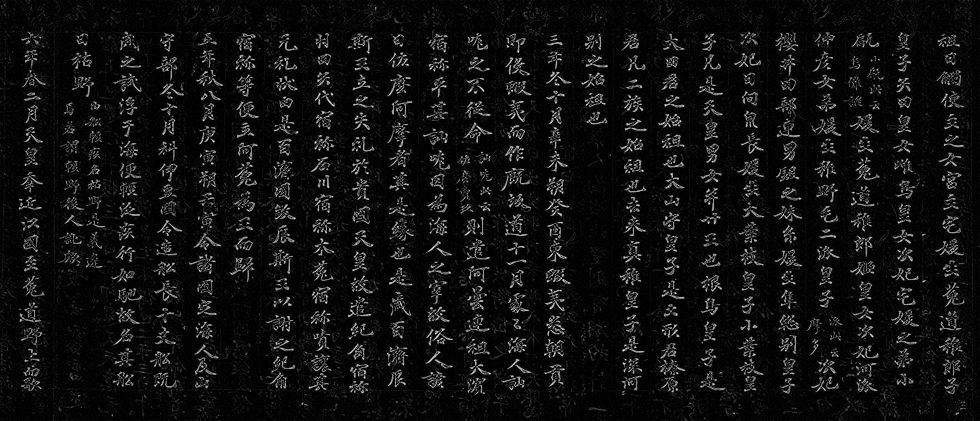 祖日觸使主之女宮主宅媛生菟道稚郎子
皇子矢田皇女雌鳥皇女次妃宅媛之弟小
甂媛生菟道稚郎姬皇女次妃河派
仲彦女弟媛生稚野毛二派皇子派此云 次妃
櫻井田部連男鉏之妹糸媛生隼総別皇子
次妃日向泉長媛生大葉枝皇子小葉枝皇
子凡是天皇男女并廿王也根鳥皇子是
大田君之始祖也大山守皇子是土形君榛原
君凡二族之始祖也去来真稚皇子是深河
別之始祖也
三年冬十月辛未朔癸酉東蝦夷悉朝貢
即役蝦夷而作厩坂道十一月處々海人訕
哤之不從命訕哤此云 則遣阿曇連祖大濱
宿祢平其訕哤因為海人之宰故俗人諺
曰佐麼阿摩者其是緣也是歳百濟辰
斯王立之失礼於貴國天皇故遣紀角宿祢
羽田矢代宿祢石川宿祢木菟宿祢嘖讓其
无礼狀由是百濟國殺辰斯王以謝之紀角
宿祢等便立阿花為王而歸
五年秋八月庚寅朔壬寅令諸國定海人及山
守部冬十月科伊豆國令造船長十丈船既
成之試浮于海便輕泛疾行如馳故名其船
曰枯野由船輕疾名枯野是義違焉若謂輕野後人訛歟
六年春二月天皇幸近江國至菟道野上而歌